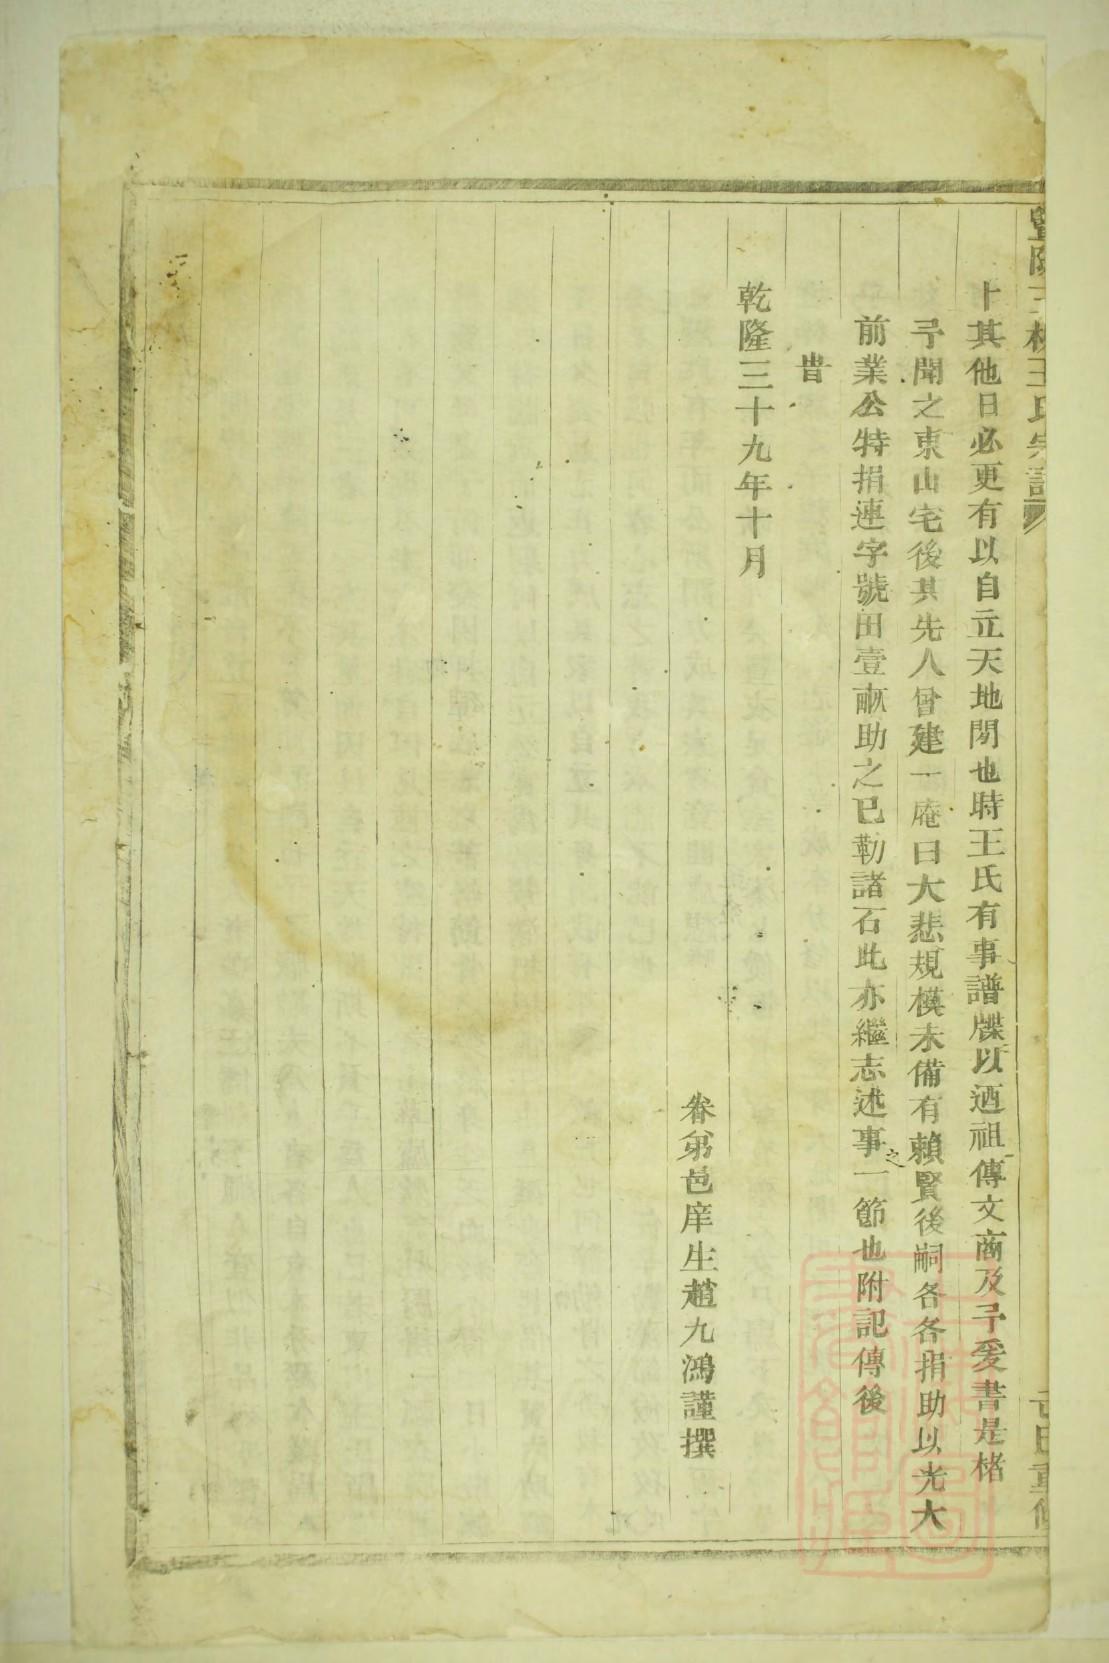 十其他日必更有以自立天地間也時王氏有事譜牒以迺祖傳文商及予爰書是楮
予聞之東山宅後其先人曾建一庵曰大悲規模未備有賴賢後嗣各各捐助以光大
前業公特捐連字號田壹畝助之已勒諸石此亦繼志述事之一節也附記傳後
旹
乾隆三十九年十月
眷弟邑庠生趙九鴻謹撰